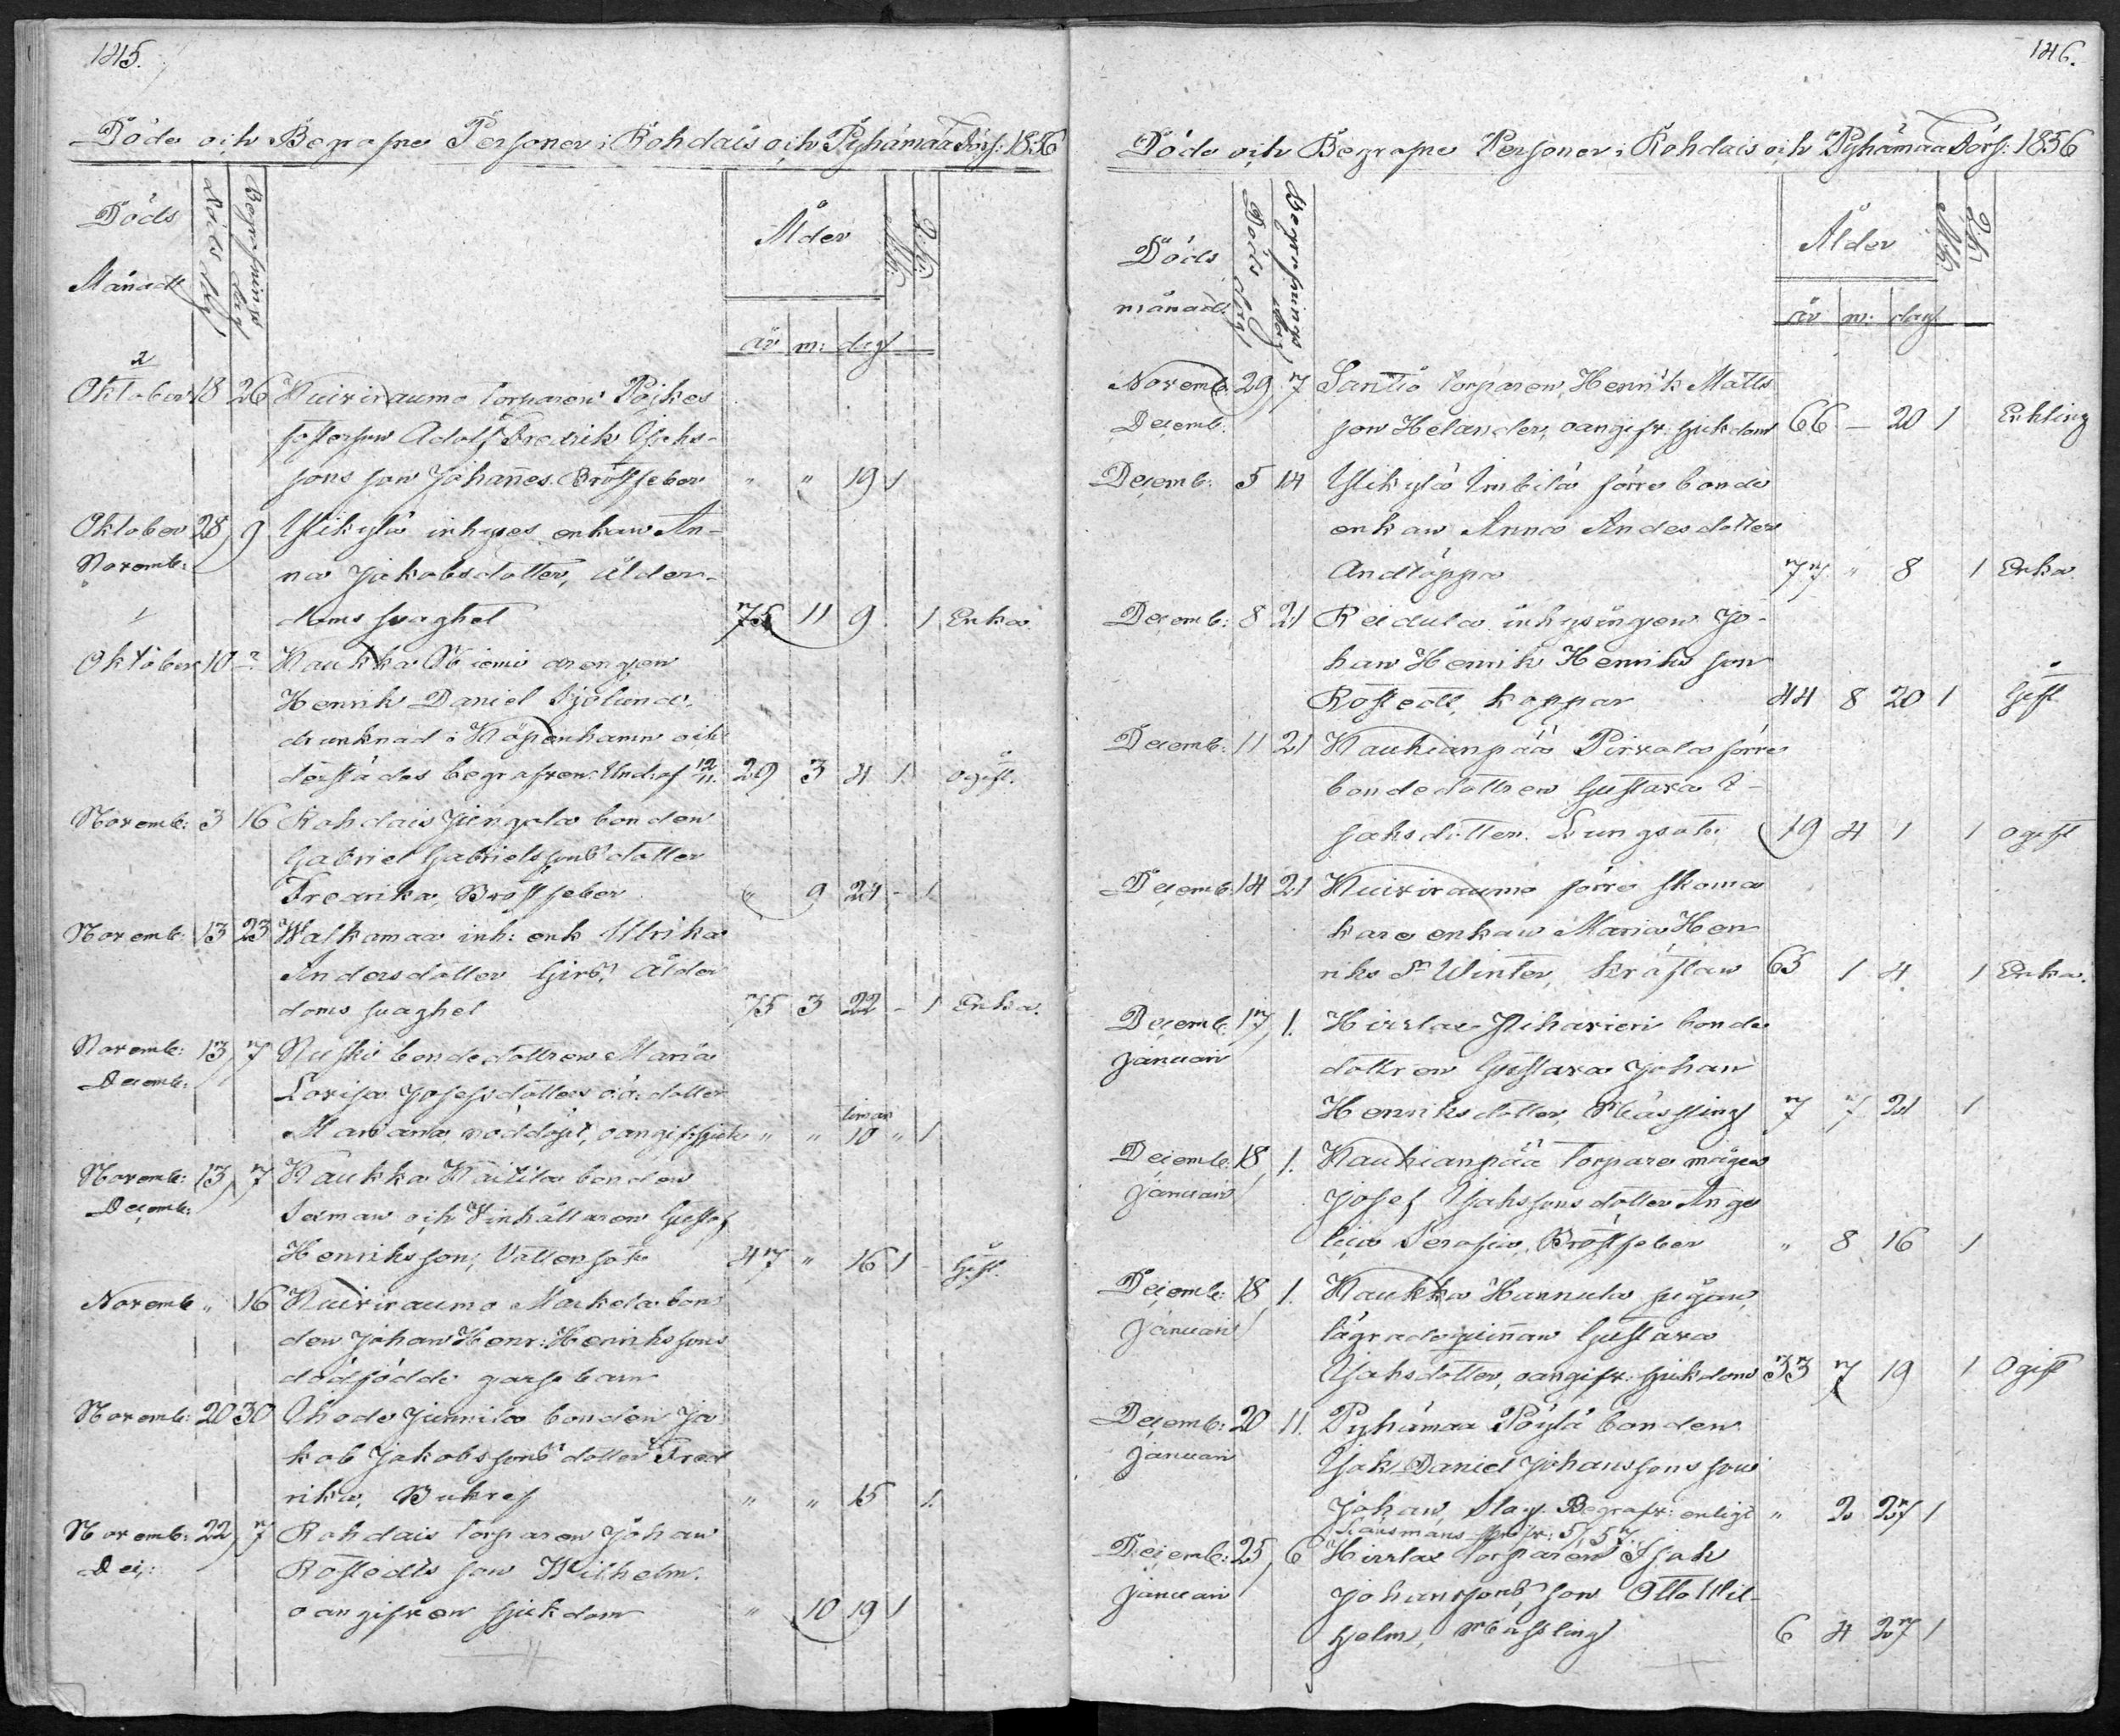 145.
Döde och Begrafne Personer i Rohdais och Pyhämaa Förs: 1856
Döds Månad
Döds dag
Begrafnings dag
Ålder
år m: dag
M.k:
Q.k:
Oktober 18 26 Kuiviraumo torparen Pojkes
fostersson Adolf Fredrik Isaks-
sons son Johannes. Bröstfeber " " 19 1
Oktober 28 9 Ylikylä inhyses enkan An-
Novemb: na Jakobsdotter, Ålder-
doms svaghet 75 11 9 1 Enka
Oktober 10 ? Kaukka Niemi drengen
Henrik Daniel Sjölund,
drunknad i Köpenhamn och
derstädes begrafven Und: af 12/11. 29 3 4 1 ogift.
Novemb: 3 16 Rohdais Jungola bonden
Gabriel Gabrielssons dotter
Fredrika, Bröstfeber " 9 24 - 1.
Novemb: 13 23 Walkamaa inh: enk Ulrika
Andersdotter Girs, Ålder
doms svaghet 75 3 22 - 1 Enka.
Novemb: 13 7 bondedottren Maria
Decemb: Lovisa Josefsdotters o.ä. dotter
timar
Mariana nöddöpt, oangifv: sjukd " " 10 " 1
Novemb: 13 7 Kaukka Kaitila bonden
Decemb: Sexman och Vinhållaren Gustaf
Henriksson, Vattensot 47 " 16 1 - Gift.
Novemb " 16 Kuiviraumo Markola bon
den Johan Henr: Henrikssons
dödfödda gossebarn
Novemb: 20 30 Ihode Junnila bonden Ja
kob Jakobssons dotter Fred
rika, Bukref " " 15 1.
Novemb: 22 7 Rohdais torparen Johan
Dec: Rostedts son Wilhelm.
oangifven sjukdom " 10 19 1
146.
Döde och Begrafne Personer i Rohdais och Pyhämaa Förs: 1856
Döds månad
Döds dag
Begrafnings dag
Ålder
år m: dag
M.k:
Q.k:
Novemb: 29 7 Santio torparen, Henrik Matts
Decemb: son Helander, oangifv: sjukdom 66 - 20 1 Enkling
Decemb: 5 14 Ylikylä Imbilä förre bonde
enkan Anna Andersdotter
Andtöppa 77 " 8 1 Enka
Decemb: 8 21 Reidula inhysingen Jo-
han Henrik Henriks son
Rostedt, koppor 44 8 20 1 Gift
Decemb: 11 21 Kauhianpää Pirvola förre
bondedottren Gustava I-
saksdotter. Lungsot: 19 4 1 1 ogift
Decemb: 14 21 Kuiviraumo förre skoma
kare enkan Maria Hen
riks Dr Winter, Kräftan 65 1 4 1 Enka.
Decemb: 17 1. Hirslax bonde
Januari dottren Gustava Johan
Henriksdotter, Mässling 7 7 21 1
Decemb: 18 1. Kauhianpää torpare mågen
Januari Josef Isakssons dotter Ange
lica Serafia, Bröstfeber " 8 16 1
Decemb: 18 1. Kaukka Hannula pigan,
Januari lägradequinnan Gustava
Isaksdotter, oangifv: sjukdom 33 7 19 1 Ogift
Decemb: 20 11. Pyhämaa Pöylä bonden
Januari Isak Daniel Johanssons son
Johan, Slag. Begrafv: enligt " 2 27 1
Länsmans 5/1 57
Decemb: 25 6 Hirslax torparen Isak
Januari Johanssons son Otto Wil-
helm, Mässling 6 4 27 1